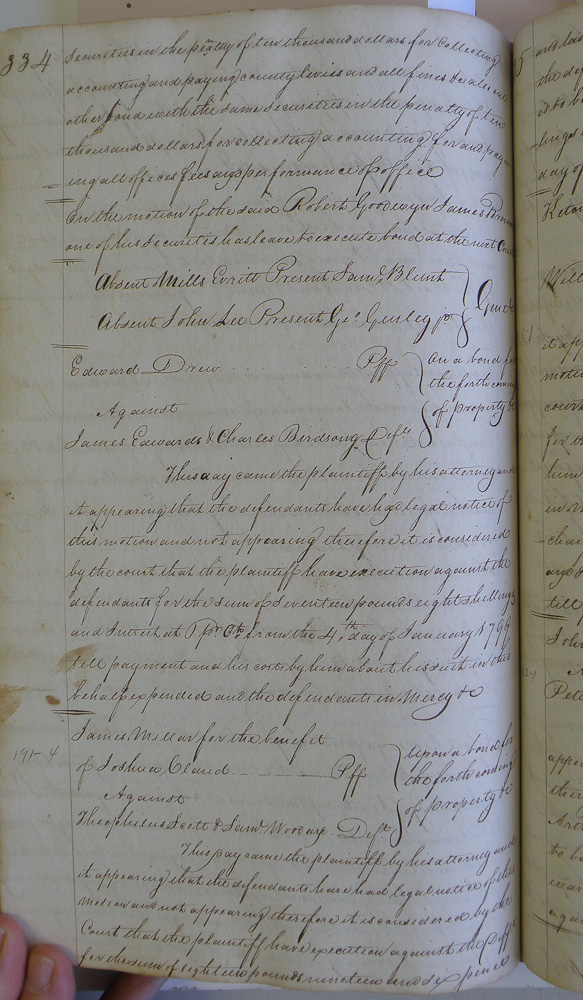 334
Securities in the penalty of ten thousand dollars for Collecting
accounting and paying county levies and all fines &c also one
other bond with the same securities in the penalty of ten
thousand dollars for collecting accounting for and pay-
ing all officers fees and performance of office
On the motion of the said Robert Goodwyn James
one of his securities has leave to execute bond at the next
Absent Mills Evritt Present Saml. Blunt
Absent John Lee Present Geo. Gurley jr.
Edward Drew Plff On a bond for
the forthcoming
Against of property &c
James Edwards & Charles Birdsong Defts
This day came the plaintiff by his attorney and
it appearing that the defendants have had legal notice of
this motion and not appearing therefore it is considered
by the court that the plaintiff have execution against the
defendants for the sum of Seventeen pounds eight shillings
and Interest at from the 4th day of January 1799
till payment and his costs by him about his suit in this
behalf expended and the defendants in Mercy &c
James Millar for the benefit Upon a bond for
191-4
of Joshua Claud Plff the forthcoming
Against of property &c
Theophilus Scott & Saml Deft
This day came the plaintiff by his attorney and
it appearing that the defendants have had legal notice of this
motion and not appearing therefore it is considered by the
Court that the plaintiff have execution against the Defts
for the sum of eighteen pounds nineteen and six pence